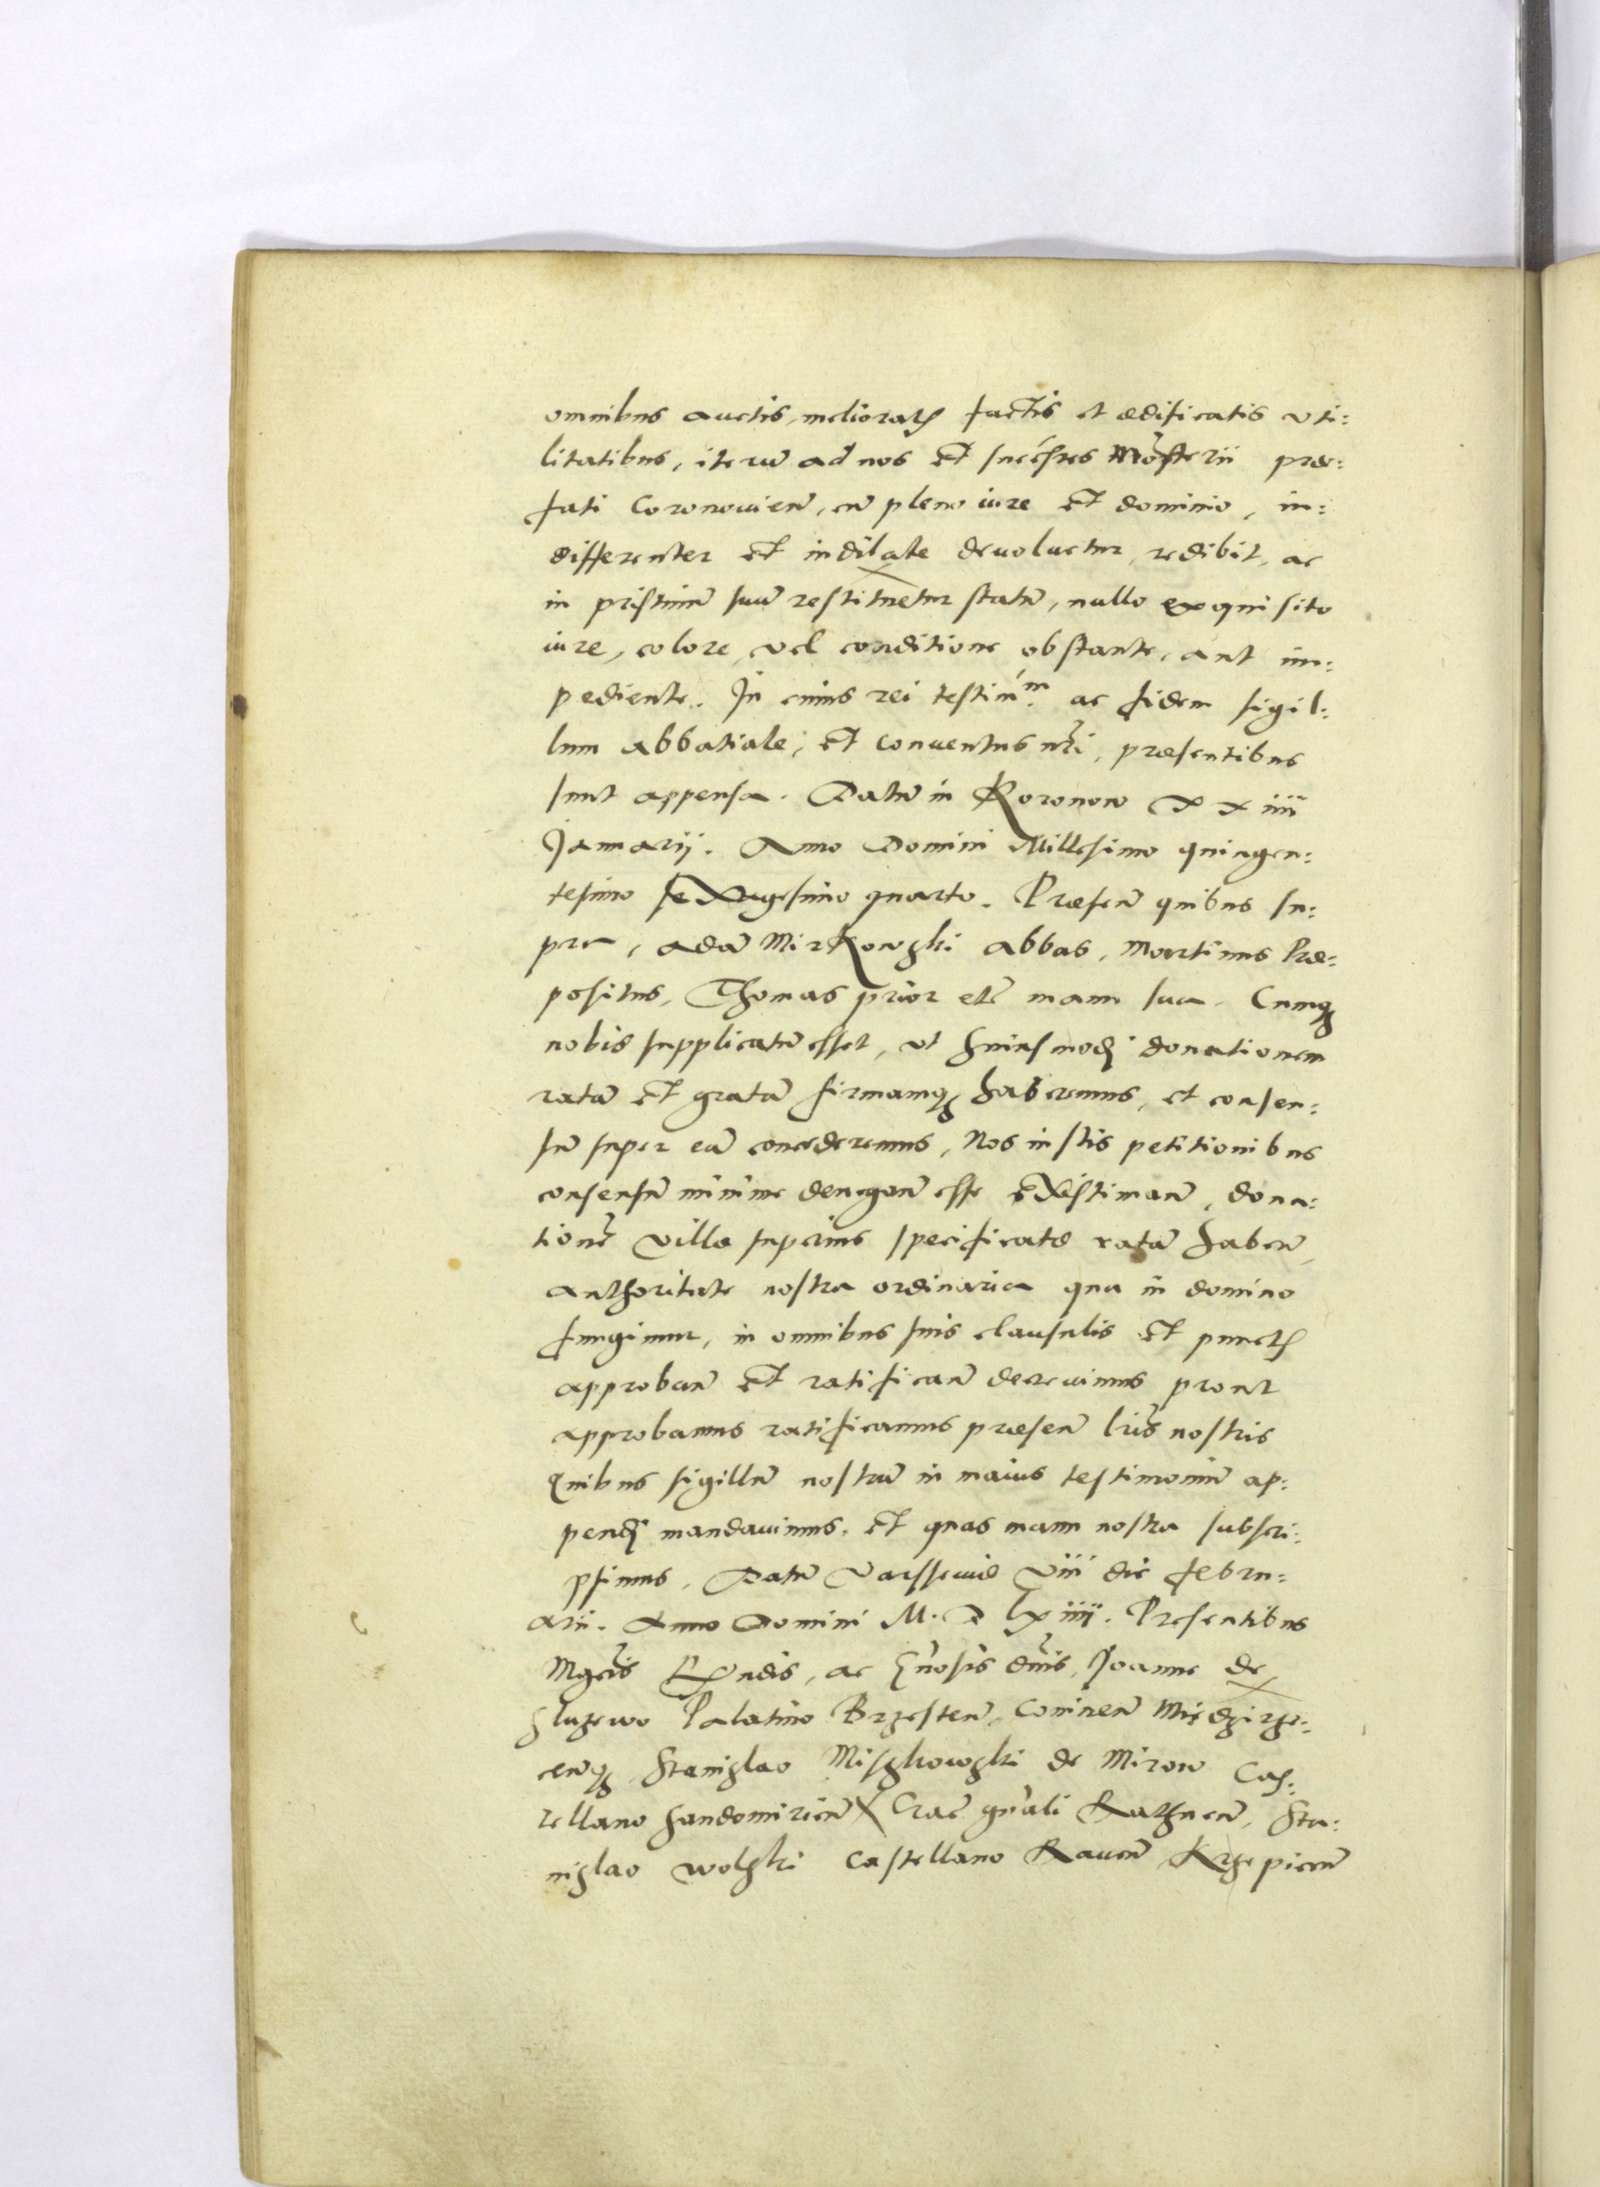 omnibus auctis, meliorat[is] factis et ædificatis uti:
litatibus, iterū ad nos et succ̄ssores Mōsterii præ:
fati Coronovien̄, cū pleno iure et dominio, in:
differenter et indilate devoluetur, redibit, ac
in pristinū suū restituetur statū, nullo exquisito
iure, colore, vel conditione obstante, aut im:
pediente. In cuius rei testim̄m. ac fidem sigil:
lum abbatiale, et conventus nr̄i, præsentibus
sunt appensa. Datū in Koronow XXiiii
Januarij. Anno Domini Millesimo quingen:
tesimo sexagesimo quarto. Præsen̄ quibus su:
pra, Adā Mirkowski Abbas, Martinus Præ:
positus, Thomas prior etc̄ manu sua. Cumq[ue]
nobis supplicatū esset, ut huiusmodi donationem
ratā et gratā firmamq[ue] haberemus, et consen:
sū super eā concederemus, Nos iustis petitionibus
consensū minime denegan̄ esse existiman̄, dona:
tionē villæ superius specificatæ ratā haben̄,
authoritate nostra ordinaria qua in domino
fungimur, in omnibus suis clausulis et punct[is]
approban̄ et ratifican̄ decrevimus prout
approbamus ratificamus præsen̄ lr̄is nostris
Quibus sigillū nostrū in maius testimoniū ap:
pendi mandavimus. Et quas manu nostra subscri:
psimus, Datū Varsseviæ viii die Febru:
arii. Anno Domini M. D Lxiiii. Presentibus
Mgcīs R̄ndis, ac Gn̄osis dn̄is, Joanne de
Sluzewo Palatino Brzesten̄, Coninen̄ Miedzirze:
cenq[ue] Stanislao Miskowski de Mirow Cas:
tellano Sandomirien̄ Crac̄ gn̄ali Rathnen̄, Sta:
nislao Wolski Castellano Raven̄ Krzepicen̄